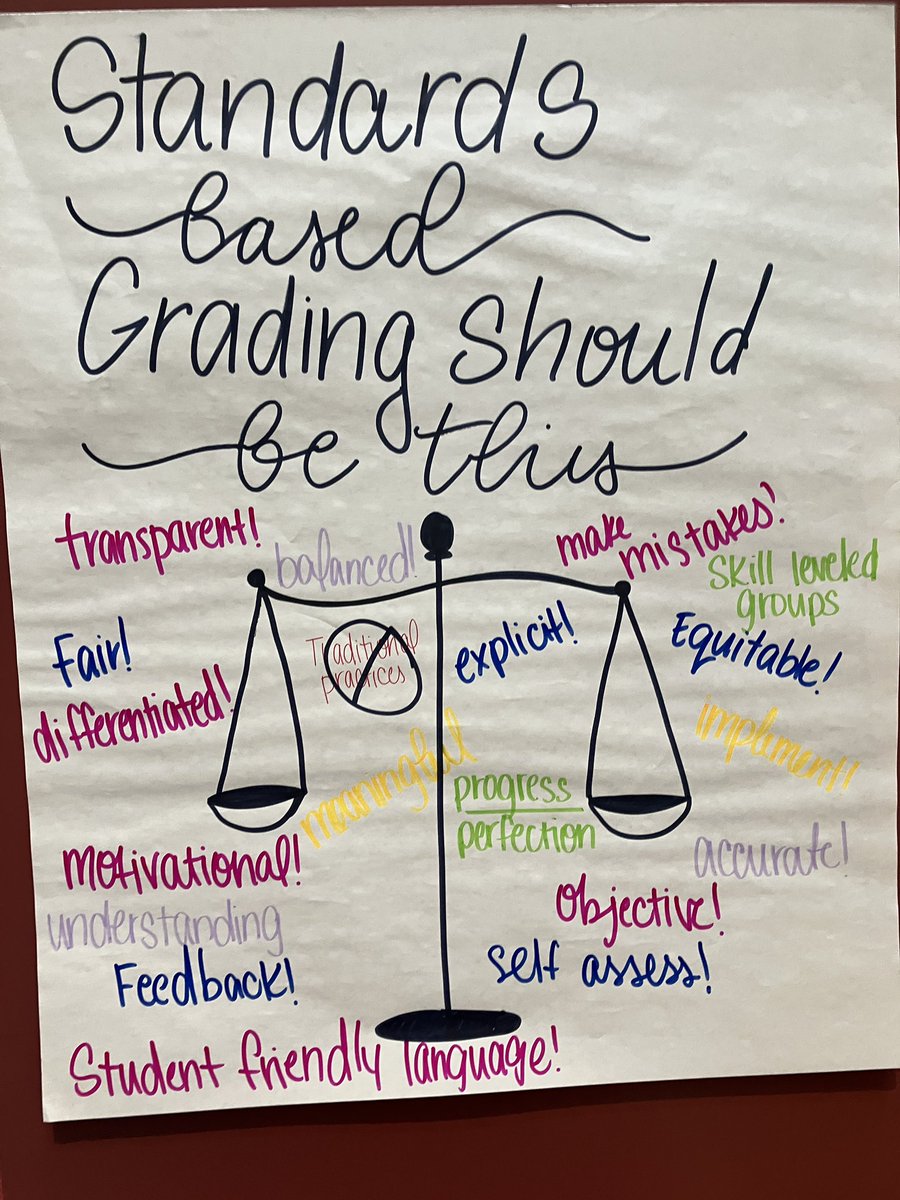 Standards
based
Grading should
be this
transparent!
balanced!
make
mistakes!
Skill leveled
groups
Fair!
Traditional
practices
explicit!
Equitable!
differentiated!
meaningful
implement!
progress
perfection
motivational!
accurate!
understanding
Objective!
Feedback!
self assess!
Student friendly language!